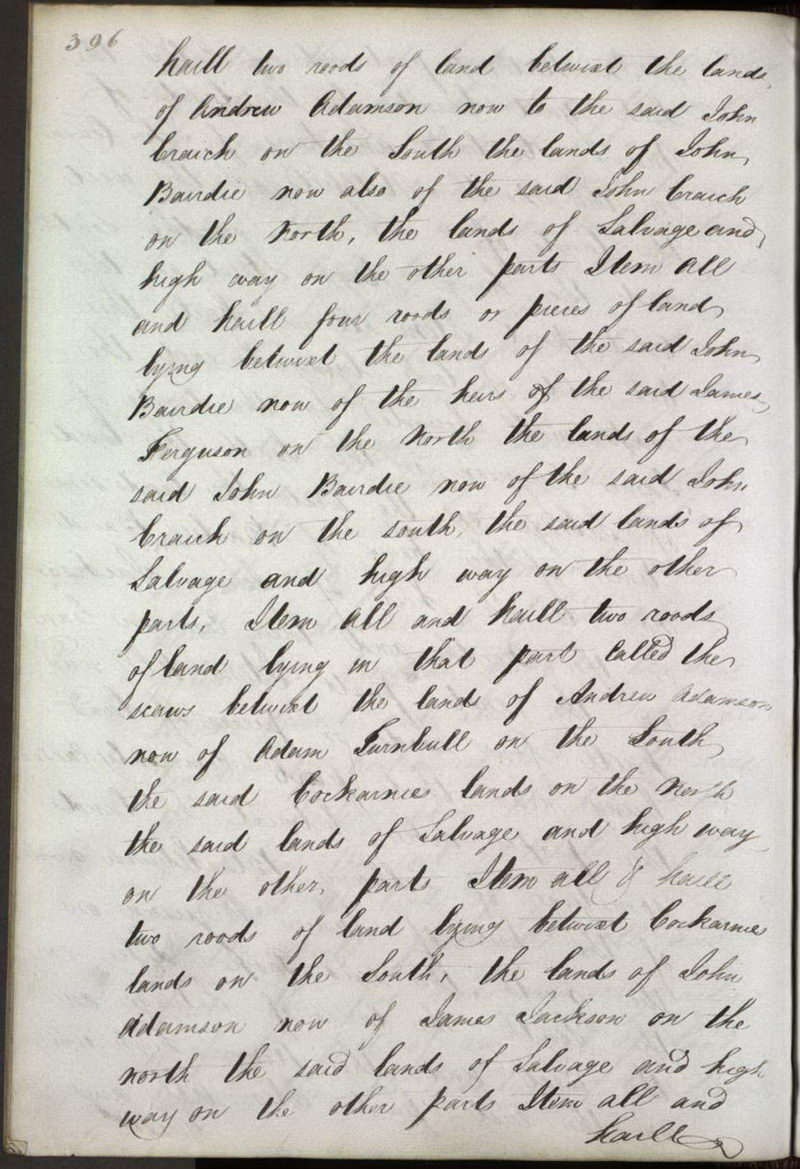 396
haill two roods of land betwixt the lands
of Andrew Adamson now to the said John
Craich on the South the lands of John
Bairdie now also of the said John Craich
on the North, the lands of Salvage and
high way on the other parts Item all
and haill four roods or pieces of land
lying betwixt the lands of the said John
Bairdie now of the heirs of the said James
Ferguson on the North the lands of the
said John Bairdie now of the said John
Craich on the south, the said lands of
Salvage and high way on the other
parts, Item all and haill two roods
of land lying in that part Called the
scaws betwixt the lands of Andrew Adamson
now of Adam Turnbull on the South
the said Cockarnies lands on the North
the said lands of Salvage and high way
on the other parts Item all & haill
two roods of land lying betwixt Cockarnies
lands on the South, the lands of John
Adamson now of James Jackson on the
north the said lands of Salvage and high
way on the other parts Item all and
haill